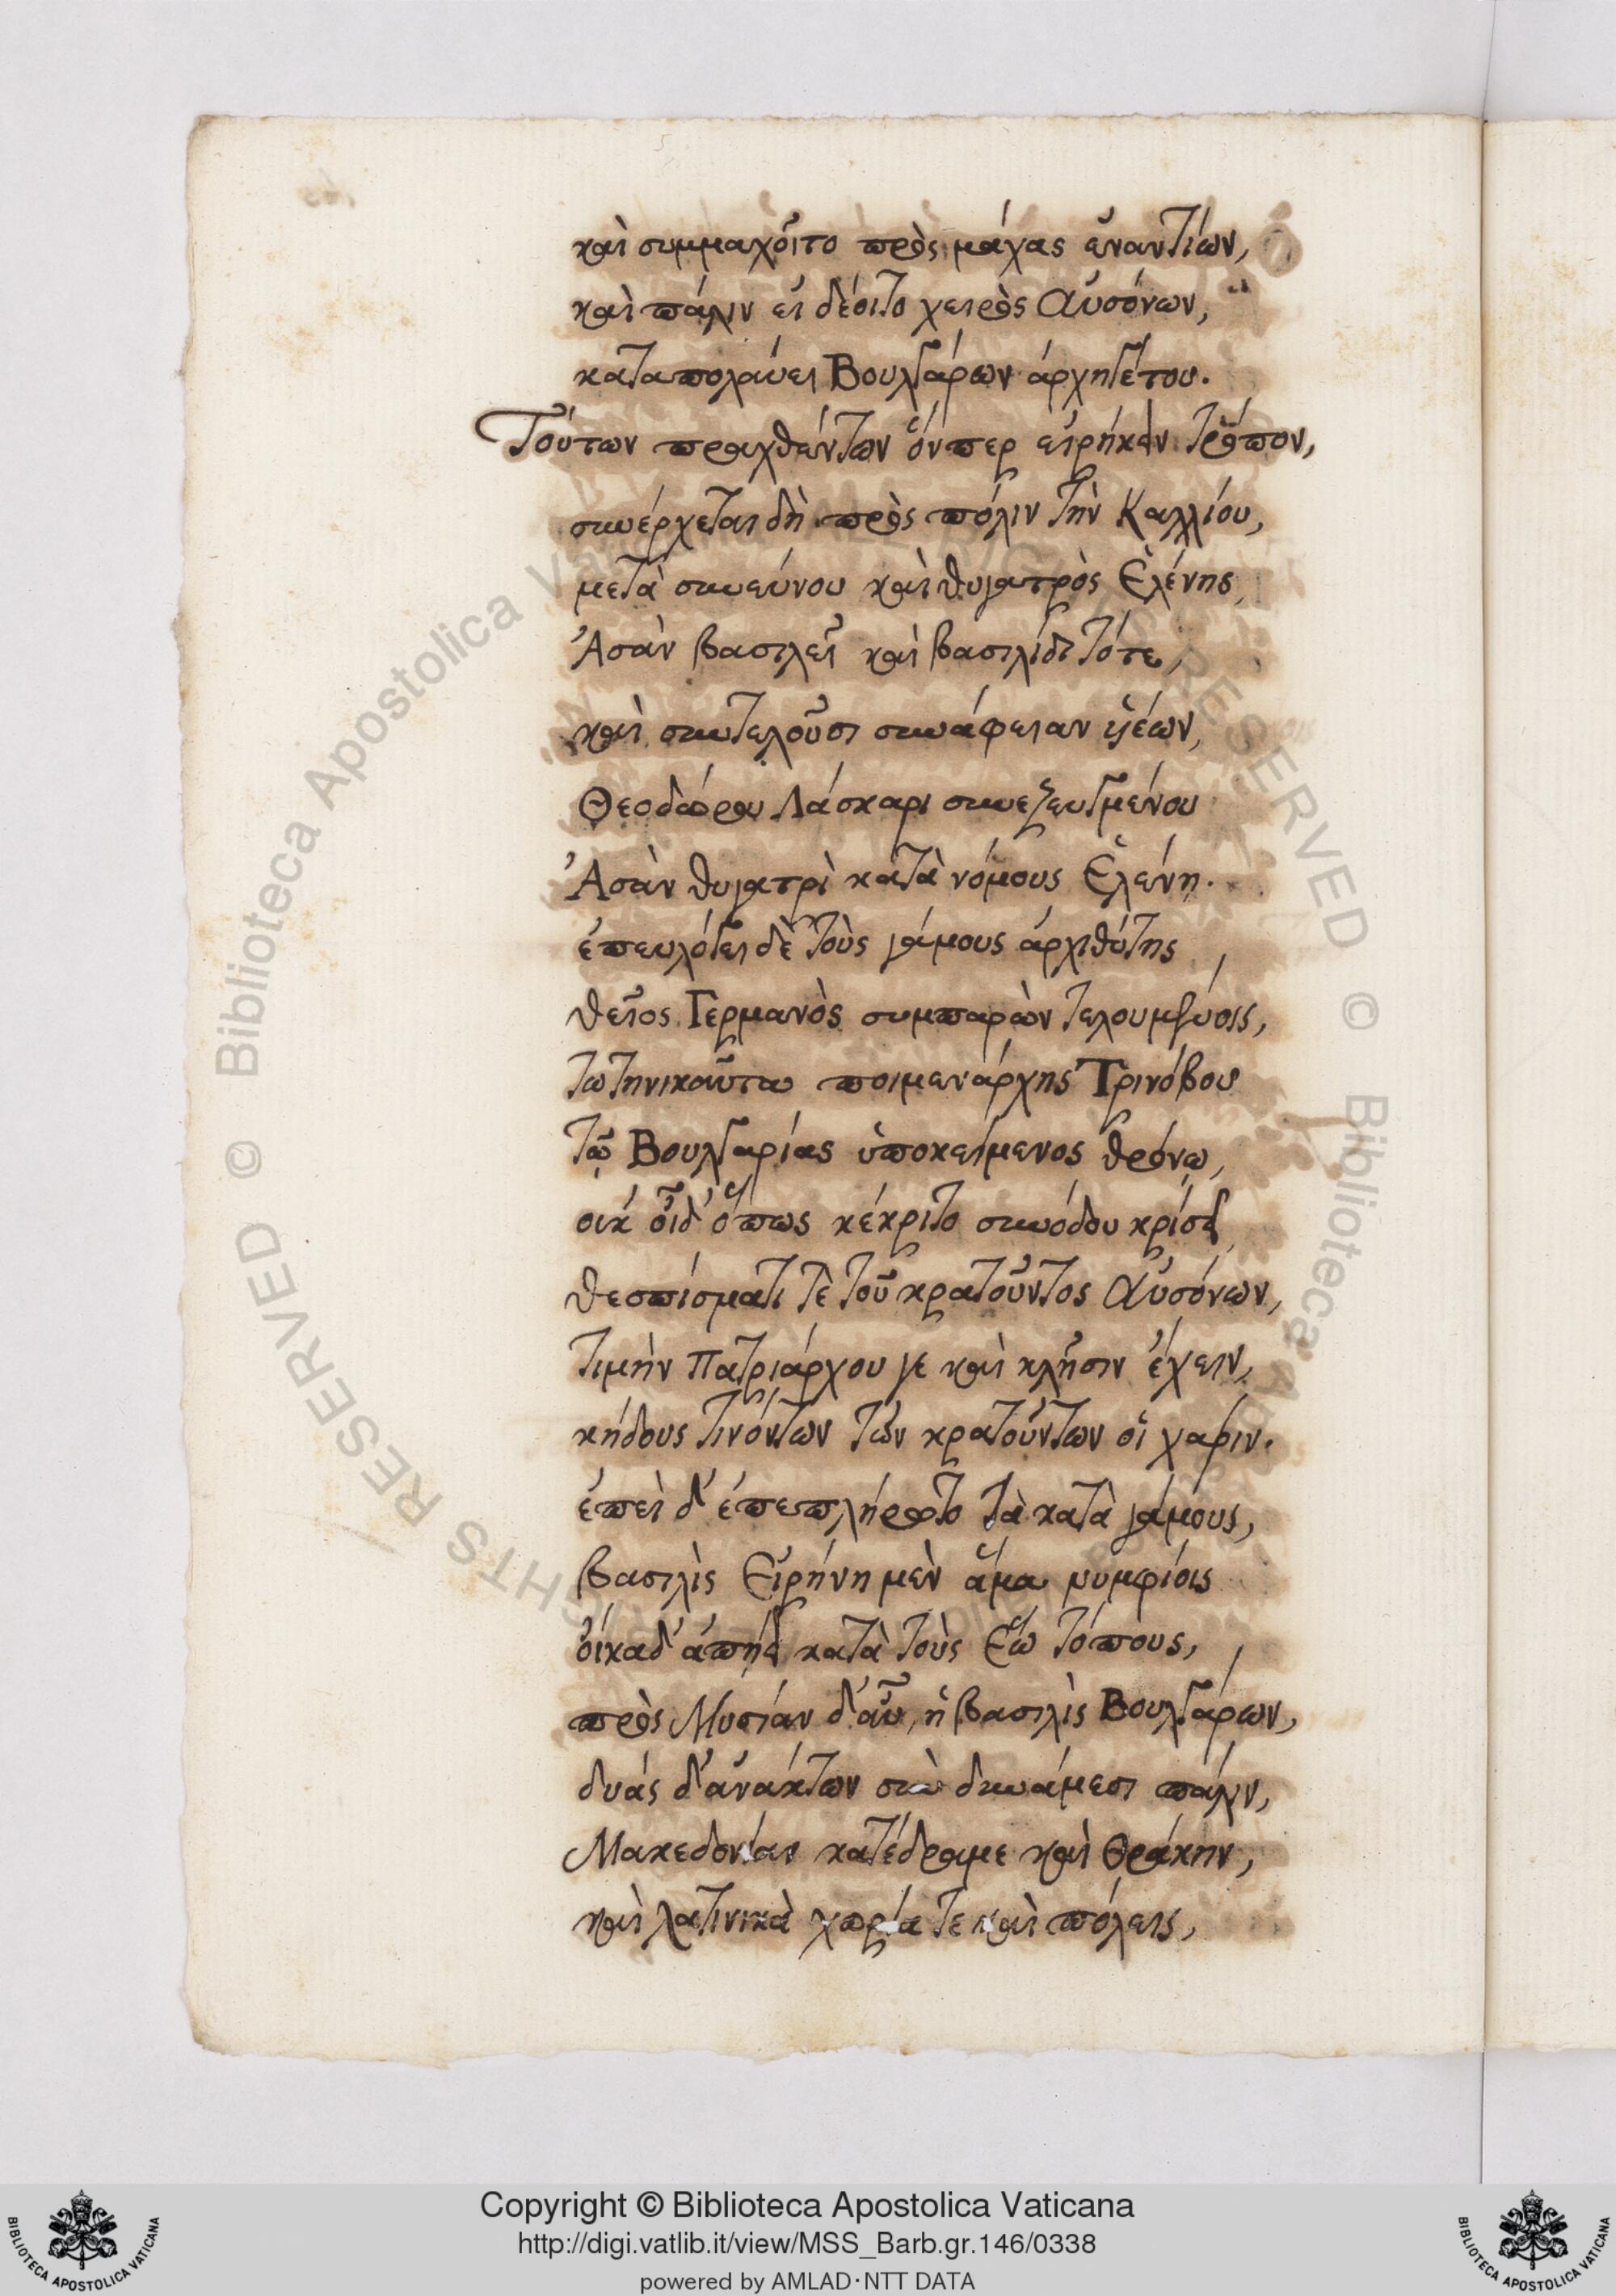 καὶ συμμαχοῖτο πρὸς μάχας ἐναντίων,
καὶ πάλιν εἰ δέοιτο χειρὸς Αὐσόνων,
καταπολάυει Βουλγάρων ἀρχηγέτου.
Τούτων πραχθέντων ὅνπερ εἰρήκειν τρόπον,
συνέρχεται δὴ πρὸς πόλιν τὴν Καλλίου,
μετὰ συνεύνου καὶ θυγατρὸς Ἑλένης,
Ἀσὰν βασιλεῖ καὶ βασιλίδι τότε,
καὶ συντελοῦσι συνάφειαν υἱέων,
Θεοδώρου Λάσκαρι συνεζευγμένου
Ἀσὰν θυγατρὶ κατὰ νόμους Ἑλένη.
ἐπευλόγει δὲ τοὺς γάμους ἀρχιθύτης
θεῖος Γερμανὸς συμπαρὼν τελουμένοις,
τωτηνικαῦτα ποιμενάρχης Τρινόβου
τῷ Βουλγαρίας ὑποκείμενος θρόνῳ,
οὐκ οἶδ' ὅπως κέκριτο συνόδου κρίσει
θεσπίσματί τε τοῦ κρατοῦντος Αὐσόνων,
τιμὴν Πατριάρχου γε καὶ κλῆσιν ἔχειν,
κήδους τινόντων τῶν κρατούντων οἱ χάριν.
ἐπεὶ δ' ἐπεπλήρωτο τὰ κατὰ γάμους,
βασιλὶς Εἰρήνη μὲν ἅμα νυμφίοις
οἴκαδ' ἀπῄει κατὰ τοὺς Ἕω τόπους,
πρὸς Μυσίαν δ' αὖ, ἡ βασιλὶς Βουλγάρων,
δυάς δ' ἀνάκτων σὺν δυνάμεσι πάλιν,
Μακεδονίαν κατέδραμε καὶ Θράκην,
καὶ λατινικὰ χωρία τε καὶ πόλεις,
Copyright © Biblioteca Apostolica Vaticana
http://digi.vatlib.it/view/MSS_Barb.gr.146/0338
powered by AMLAD·NTT DATA
BIBLIOTECA APOSTOLICA VATICANA
BIBLIOTECA APOSTOLICA VATICANA